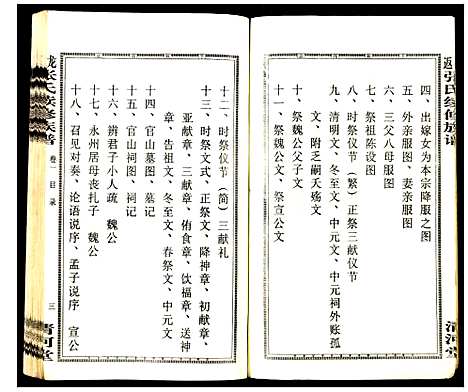 張氏续修族谱
清河堂
四、出嫁女为本宗降服之图
五、外亲服图、妻亲服图
六、三父八母服图
七、祭祖陈设图
八、时祭仪节（繁）正祭三献仪节
九、清明文、冬至文、中元文、中元祠外账孤
文、附乏嗣夭殇文
十、祭魏公父子文
十一、祭魏公文、祭宣公文
十二、时祭仪节（简）三献礼
十三、时祭文式、正祭文、降神章、初献章、
亚献章、三献章、侑食章、饮福章、送神
章、告祖文、冬至文、春祭文、中元文
十四、官山墓图、墓记
十五、祠图、祠记
十六、辨君子小人疏　魏公
十七、永州居母丧扎子　魏公
十八、召见对奏、论语说序、孟子说序　宣公
张氏续修族谱
卷一　目录
三
清河堂